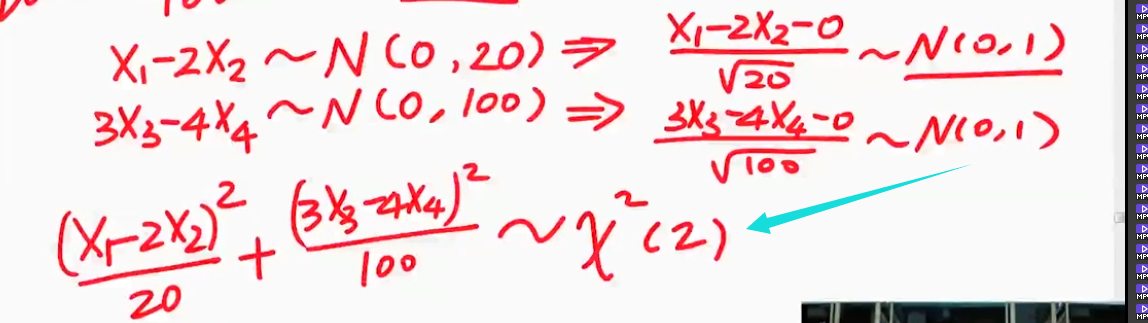 X₁-2X₂ ~ N(0, 20) ⇒ (X₁-2X₂-0)/√20 ~ N(0, 1)
3X₃-4X₄ ~ N(0, 100) ⇒ (3X₃-4X₄-0)/√100 ~ N(0, 1)
(X₁-2X₂)²/20 + (3X₃-4X₄)²/100 ~ χ²(2)